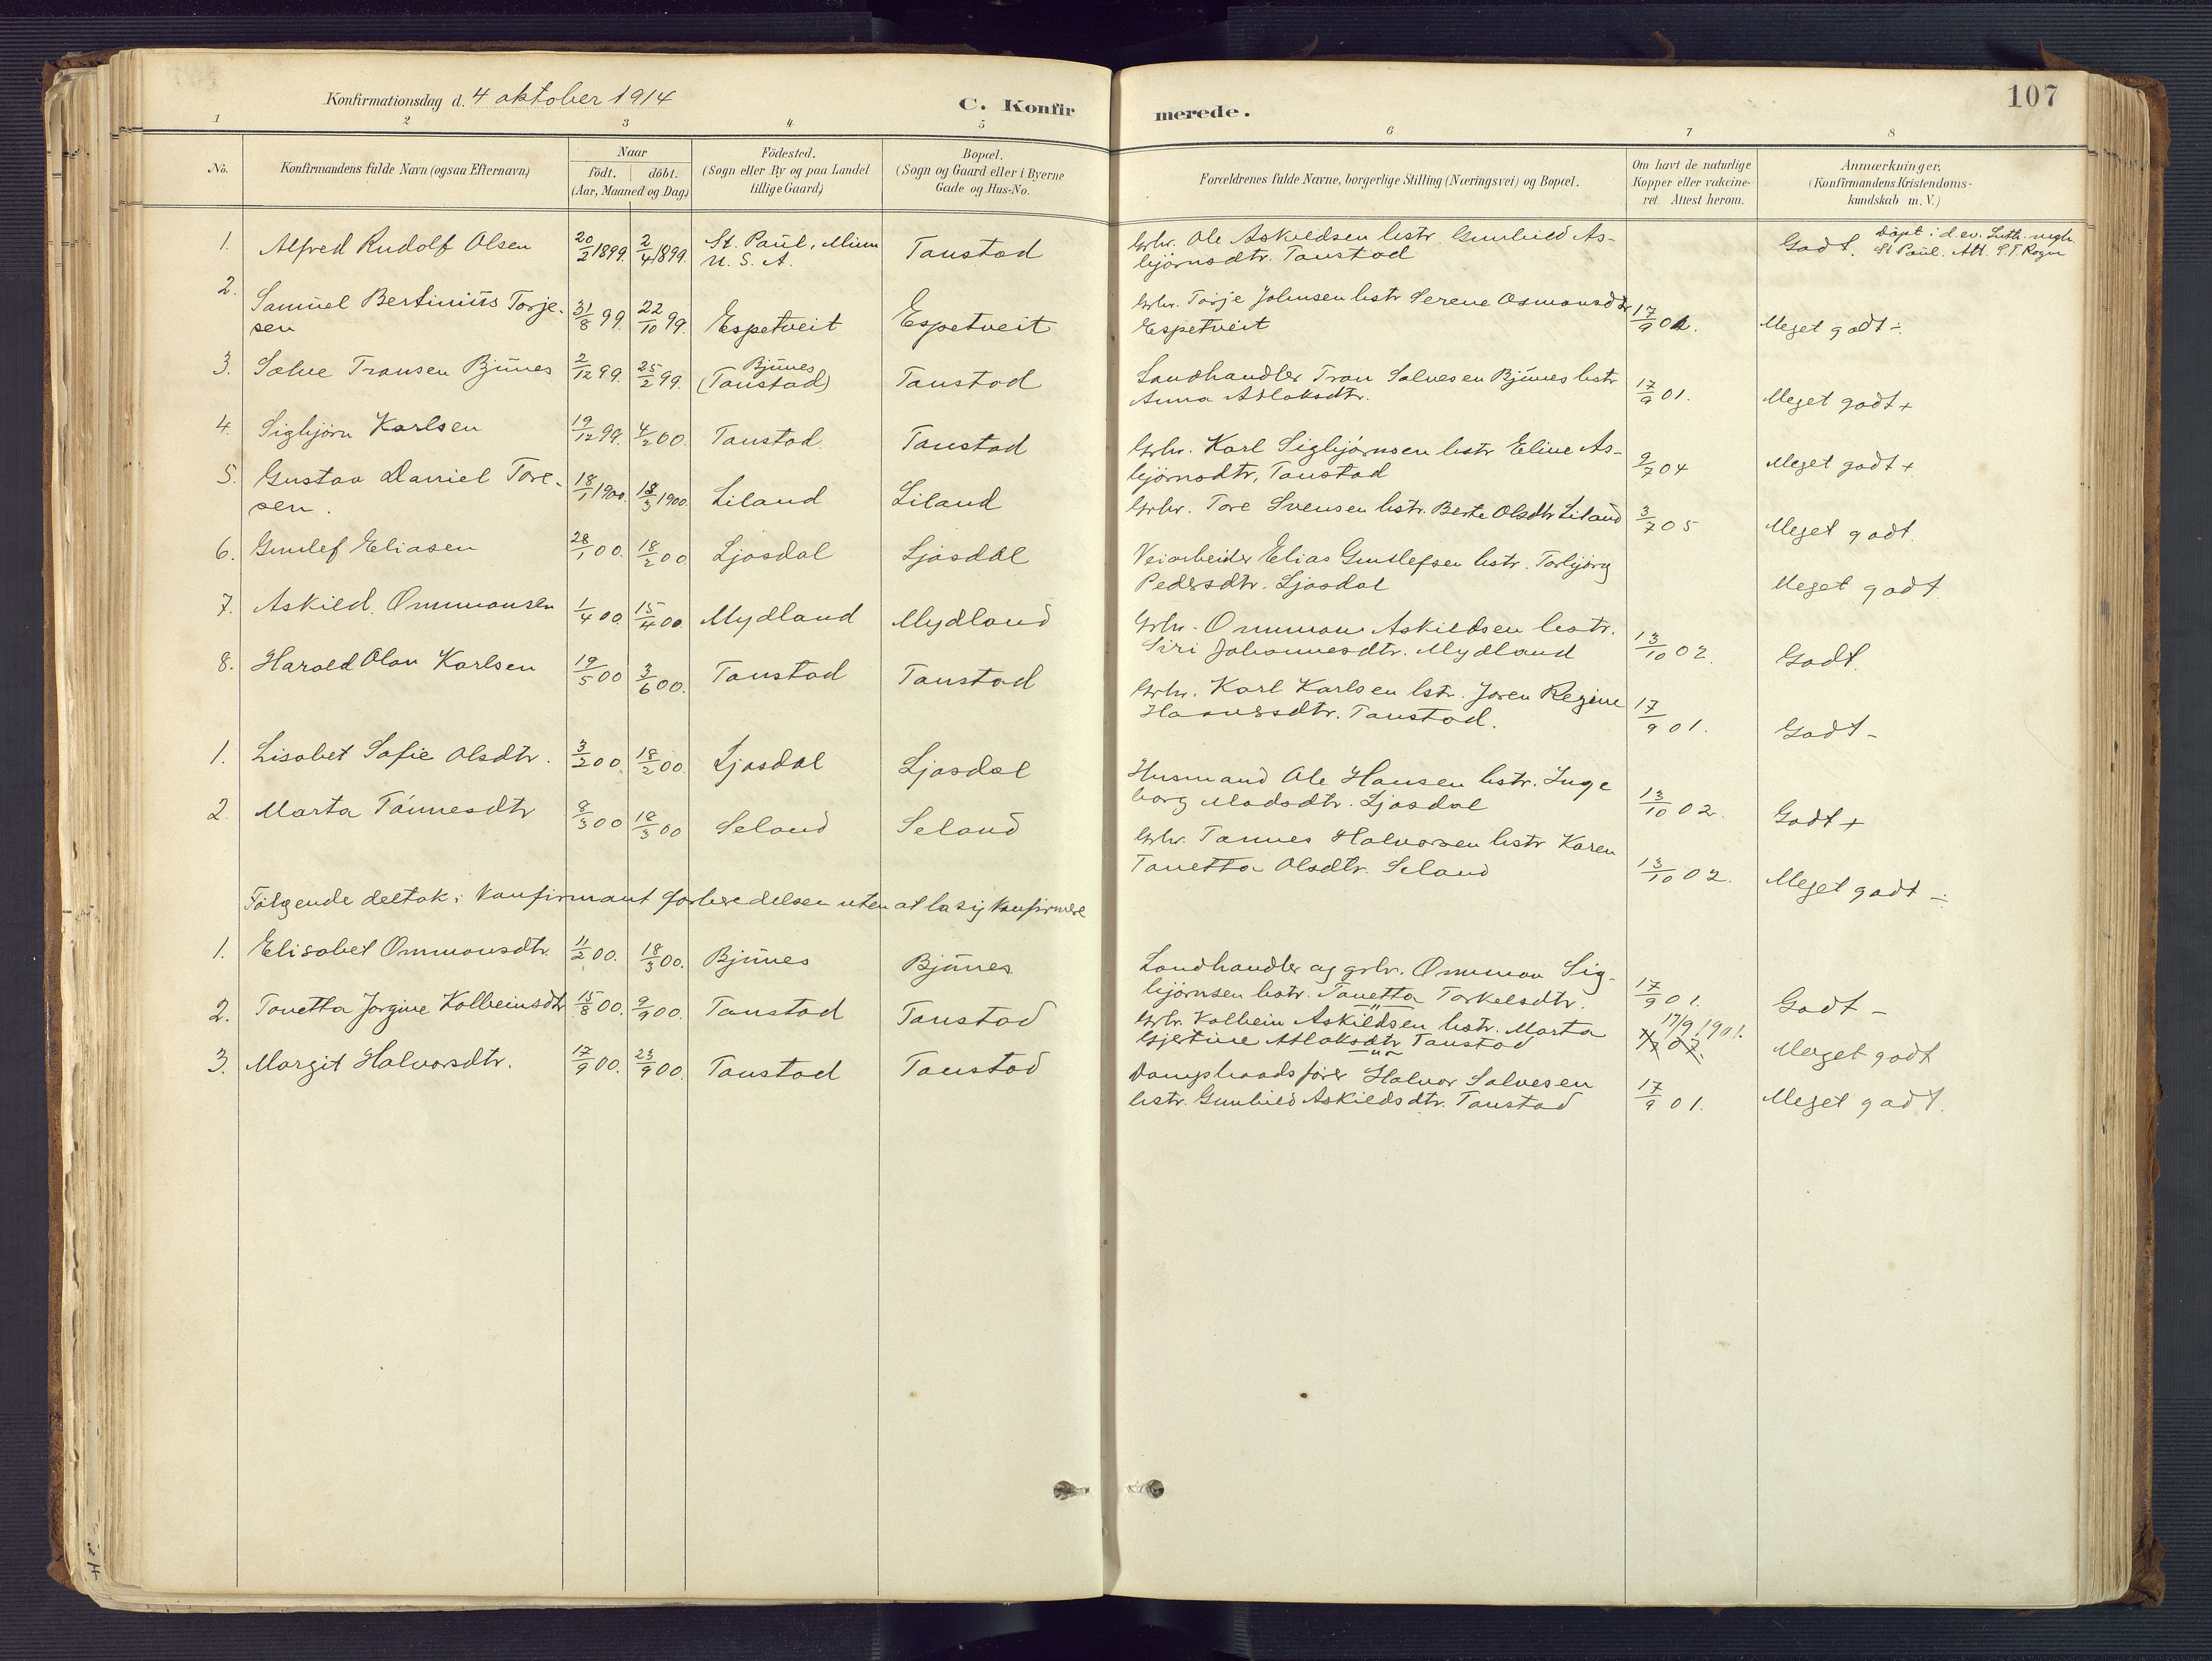 Konfirmationsdag d. 4 oktober 1914
C. Konfir
merede.
107
1 2 3 4 5 6 7 8
No.
Konfirmandens fulde Navn (ogsaa Efternavn)
Naar
födt. döbt.
(Aar, Maaned og Dag)
Födested.
(Sogn eller By og paa Landet
tillige Gaard)
Bopæl.
(Sogn og Gaard eller i Byerne
Gade og Hus-No.
Forældrenes fulde Navne, borgerlige Stilling (Næringsvei) og Bopæl.
Om havt de naturlige
Kopper eller vakcine-
ret. Attest herom.
Anmærkninger,
(Konfirmandens Kristendoms-
kundskab m. V.)
1. Alfred Rudolf Olsen 20/2 1899. 2/4 1899. St. Paul, Minn
U. S. A. Tanstad
Grbr. Ole Askildsen hstr. Gunhild As-
björnsdtr. Tanstad
Godt. Döpt i d. ev. Luth. mgh.
St Paul. Att.
2. Samuel Bertinius Torje-
sen 31/8 99. 22/10 99. Espetveit Espetveit
Grbr. Torje Johnsen hstr Serene Osmonsdtr
Espetveit 17/9 01. Meget godt ÷.
3. Salve Transen Bjunes 2/12 99. 25/2 99. Bjunes
(Tanstad) Tanstad
Landhandler Tron Salvesen Bjunes hstr
Anna Atlaksdtr. 17/9 01. Meget godt +
4. Sigbjörn Karlsen 19/12 99. 4/2 00. Tanstad. Tanstad
Grbr. Karl Sigbjörnsen hstr Eline As-
björnsdtr, Tanstad 9/7 04 Meget godt +
5. Gustav Daniel Tore-
sen. 18/1 1900. 18/3 1900. Liland Liland
Grbr. Tore Svensen hstr. Berte Olsdtr Liland 3/7 05 Meget godt.
6. Gunlef Eliasen 28/1 00. 18/2 00 Ljosdal Ljosdal
Veiarbeider Elias Gunlefsen hstr. Torbjörg
Pedersdtr. Ljosdal Meget godt.
7. Askild. Ommonsen 1/4 00. 15/4 00. Mydland Mydland
Grbr. Ommon Askildsen hstr.
Siri Johannesdtr. Mydland 13/10 02. Godt.
8. Harald Olav Karlsen 19/5 00 3/6 00. Tanstad Tanstad
Grbr. Karl Karlsen hstr. Joren Regine
Hansdtr. Tanstad. 17/9 01. Godt -
1. Lisabet Sofie Olsdtr. 3/2 00. 18/2 00. Ljosdal Ljosdal
Husmand Ole Hansen hstr. Inge
borg Madsdtr. Ljosdal 13/10 02. Godt +
2. Marta Tönnesdtr 8/3 00 18/3 00 Seland Seland
Grbr. Tönnes Halvorsen hstr Karen
Tonetta Olsdtr. Seland 13/10 02. Meget godt ÷
Fölgende deltok i Konfirmantforberedelsen uten at la sig konfirmere
1. Elisabet Ommonsdtr. 11/2 00. 18/3 00. Bjunes Bjunes
Landhandler og grbr. Ommon Sig-
björnsen hstr. Tonetta Torkelsdtr. 17/9 01. Godt -
2. Tonetta Jorgine Kolbeinsdtr 15/8 00. 9/9 00. Tanstad Tanstad
Grbr. Kolbein Askildsen hstr. Marta
Gjetine Atlaksdtr Tanstad 17/9 1901. Meget godt
3. Margit Halvorsdtr. 17/9 00. 23/9 00. Tanstad Tanstad
Dampbaadsförer Halvor Salvesen
hstr. Gunhild Askildsdtr. Tanstad 17/9 01. Meget godt.